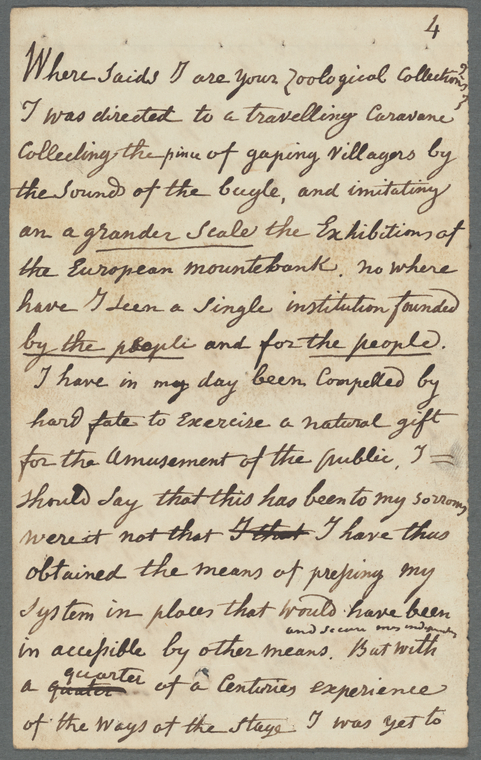 4
Where Said I are your Zoological Collections?
I was directed to a travelling Caravane
Collecting the pence of gaping Villagers by
the Sound of the bugle, and imitating
on a grander Scale the Exhibitions of
the European mountebank. no where
have I seen a Single institution founded
by the people and for the people.
I have in my day been Compelled by
hard fate to Exercise a natural gift
for the Amusement of the public, I
should Say that this has been to my sorrow
were it not that I that I have thus
obtained the means of pressing my
System in places that would have been
and secure
in accessible by other means. But with
quarter
a quater of a Centuries experience
of the ways of the Stage I was yet to